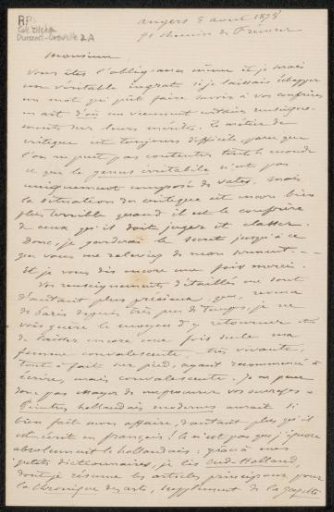 RP
Durand-Gréville 2 A
Angers 8 avril 1898
90 chemin de
Monsieur
Vous êtes l'obligeance même et je serais
un véritable ingrat si je laissais échapper
un mot qui pût faire savoir à vos confrères
d'où me viennent certains renseigne-
ments sur leurs Le métier de
critique est toujours difficile parce que
l'on ne peut pas contenter tout le monde
et que le genus irritabile n'est pas
uniquement composé de vates, mais
la situation du critique est encore bien
plus terrible quand il est le confrère
de ceux qu'il doit juger et classer.
Donc, je garderai le secret jusqu'à ce
que vous me releviez de mon serment —
Et je vous dis encore une fois merci.
Vos renseignements détaillés me sont
d'autant plus précieux que, revenu
de Paris depuis très peu de temps, je ne
vois guère le moyen d'y retourner et
de laisser encore une fois seule ma
femme convalescente, très vivante,
tout à fait sur pied, ayant recommencé à
écrire, mais convalescente. Je ne peux
donc pas essayer de me procurer vos ouvrages
Peintres hollandais modernes aurait si
bien fait mon affaire, d'autant plus qu'il
est écrit en français! Ce n'est pas que j'ignore
absolument le hollandais: grâce à mes
petits dictionnaires, je lis Oud-Holland,
dont je résume les articles principaux pour
la Chronique des arts, supplément de la Gazette